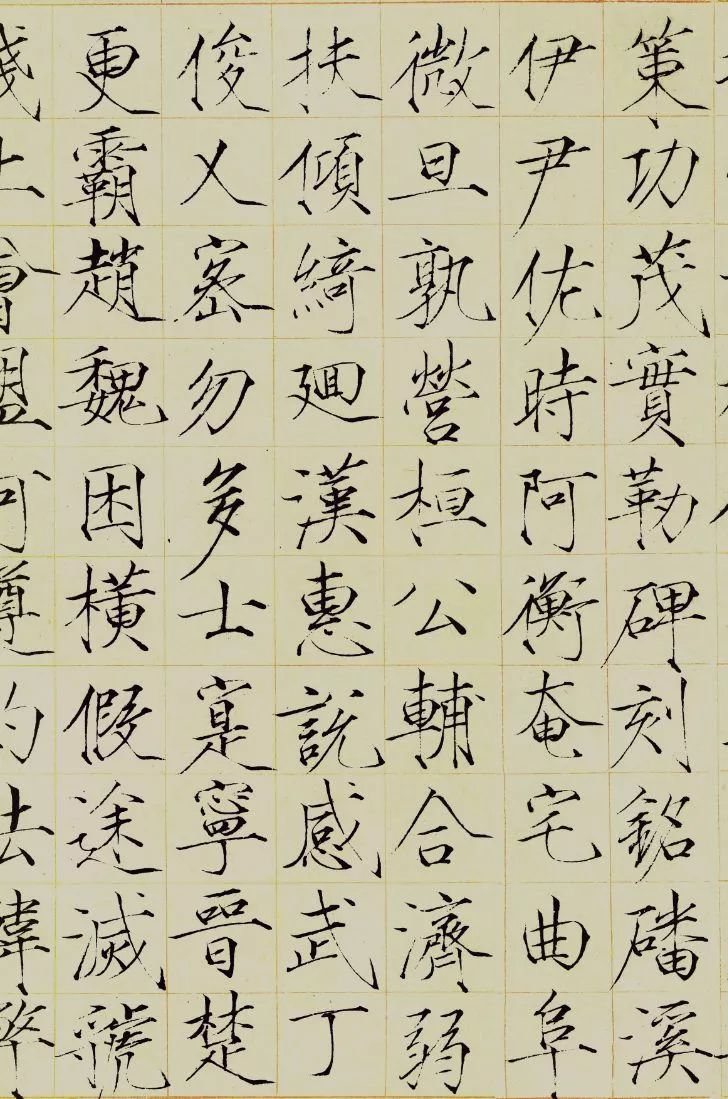 策功茂實勒碑刻銘磻溪
伊尹佐時阿衡奄宅曲阜
微旦孰營桓公輔合濟弱
扶傾綺迴漢惠說感武丁
俊乂密勿多士寔寧晉楚
更霸趙魏困橫假途滅虢
踐土會盟何遵約法韓弊